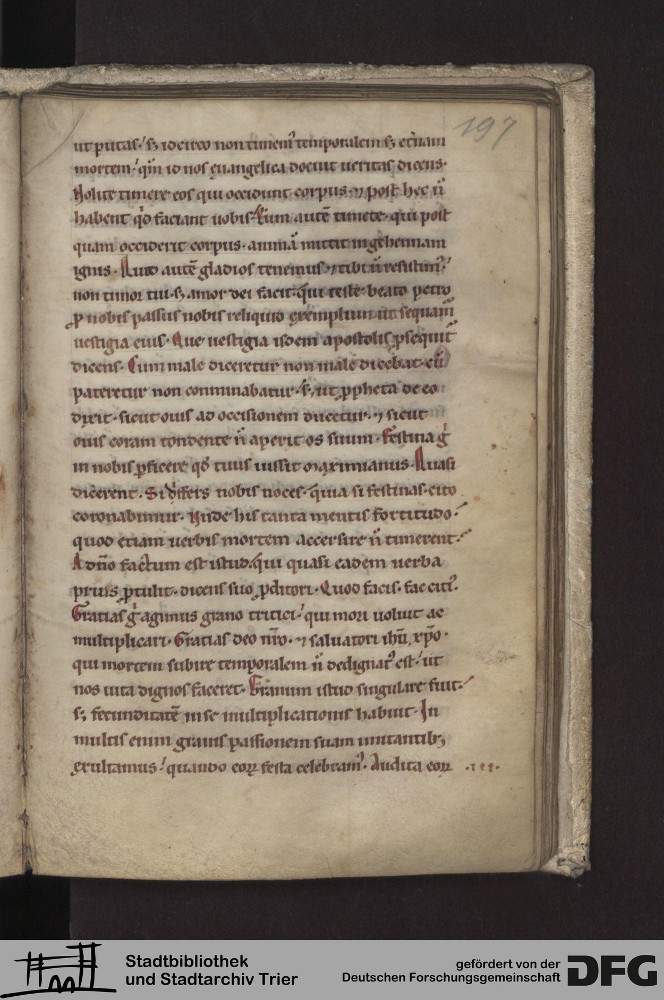 197
ut putas. sꝫ idcirco non timemꝰ temporalem sꝫ etnam
mortem. qm̄ id nos euangelica docuit ueritas dicens.
Nolite timere eos qui occidunt corpus. ⁊ post hec n̄
habent qd̓ faciant uobis. Eum autē timete. qui post
quam occiderit corpus. animā mittit in gehennam
ignis. autē gladios tenemus. ⁊ tibi n̄ resistimꝰ.
non timor tui. sꝫ amor dei facit. qui teste beato petro
ꝓ nobis passus nobis reliquit exemplum ut sequam̄
uestigia eius. Que uestigia isdem apostolis ꝓsequit̄
dicens. Cum male diceretur non male dicebat. cū
pateretur non comminabatur. sꝫ ut ꝓpheta de eo
dixit. sicut ouis ad occisionem ducetur. ⁊ sicut
ouis coram tondente n̄ aperit os suum. Festina g̓
in nobis ꝑficere qd̓ tuus iussit maximianus. Quasi
dicerent. Si differs nobis noces. quia si festinas. cito
coronabimur. Unde his tanta mentis fortitudo.
quod etiam uerbis mortem accersire n̄ timerent.
A dn̄o factum est istud. qui quasi eadem uerba
prius ꝓtulit. dicens suo ꝓditori. Quod facis. fac citiꝰ.
Gratias g̓ agimus grano tritici. qui mori uoluit ac
multiplicari. Gratias deo nr̄o. ⁊ saluatori ihū xp̄o.
qui mortem subire temporalem n̄ dedignatꝰ est. ut
nos uita dignos faceret. Granum istud singulare fuit.
sꝫ fecunditatē in se multiplicationis habuit. In
multis enim granis passionem suam imitantibꝫ
exultamus. quando eoꝝ festa celebramꝰ. Audita eoꝝ
Stadtbibliothek
und Stadtarchiv Trier
gefördert von der
Deutschen Forschungsgemeinschaft
DFG